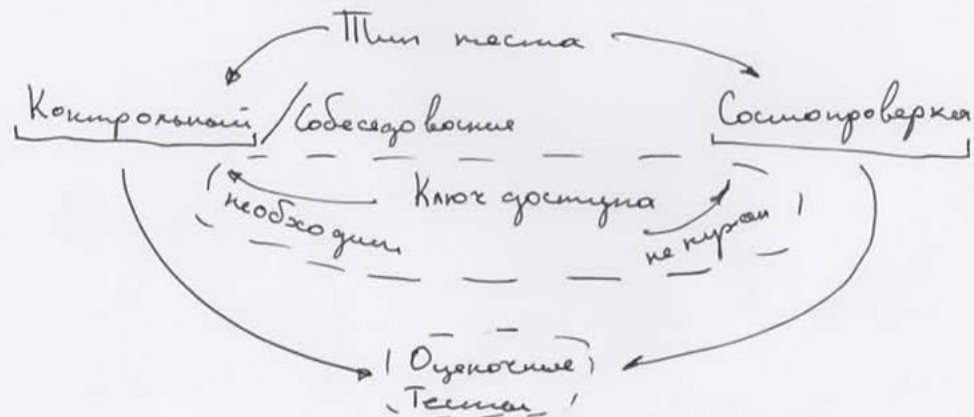 Тип теста
Контрольный / Собеседование
Самопроверка
Ключ доступа
необходим
не нужен
Оценочные
Тесты